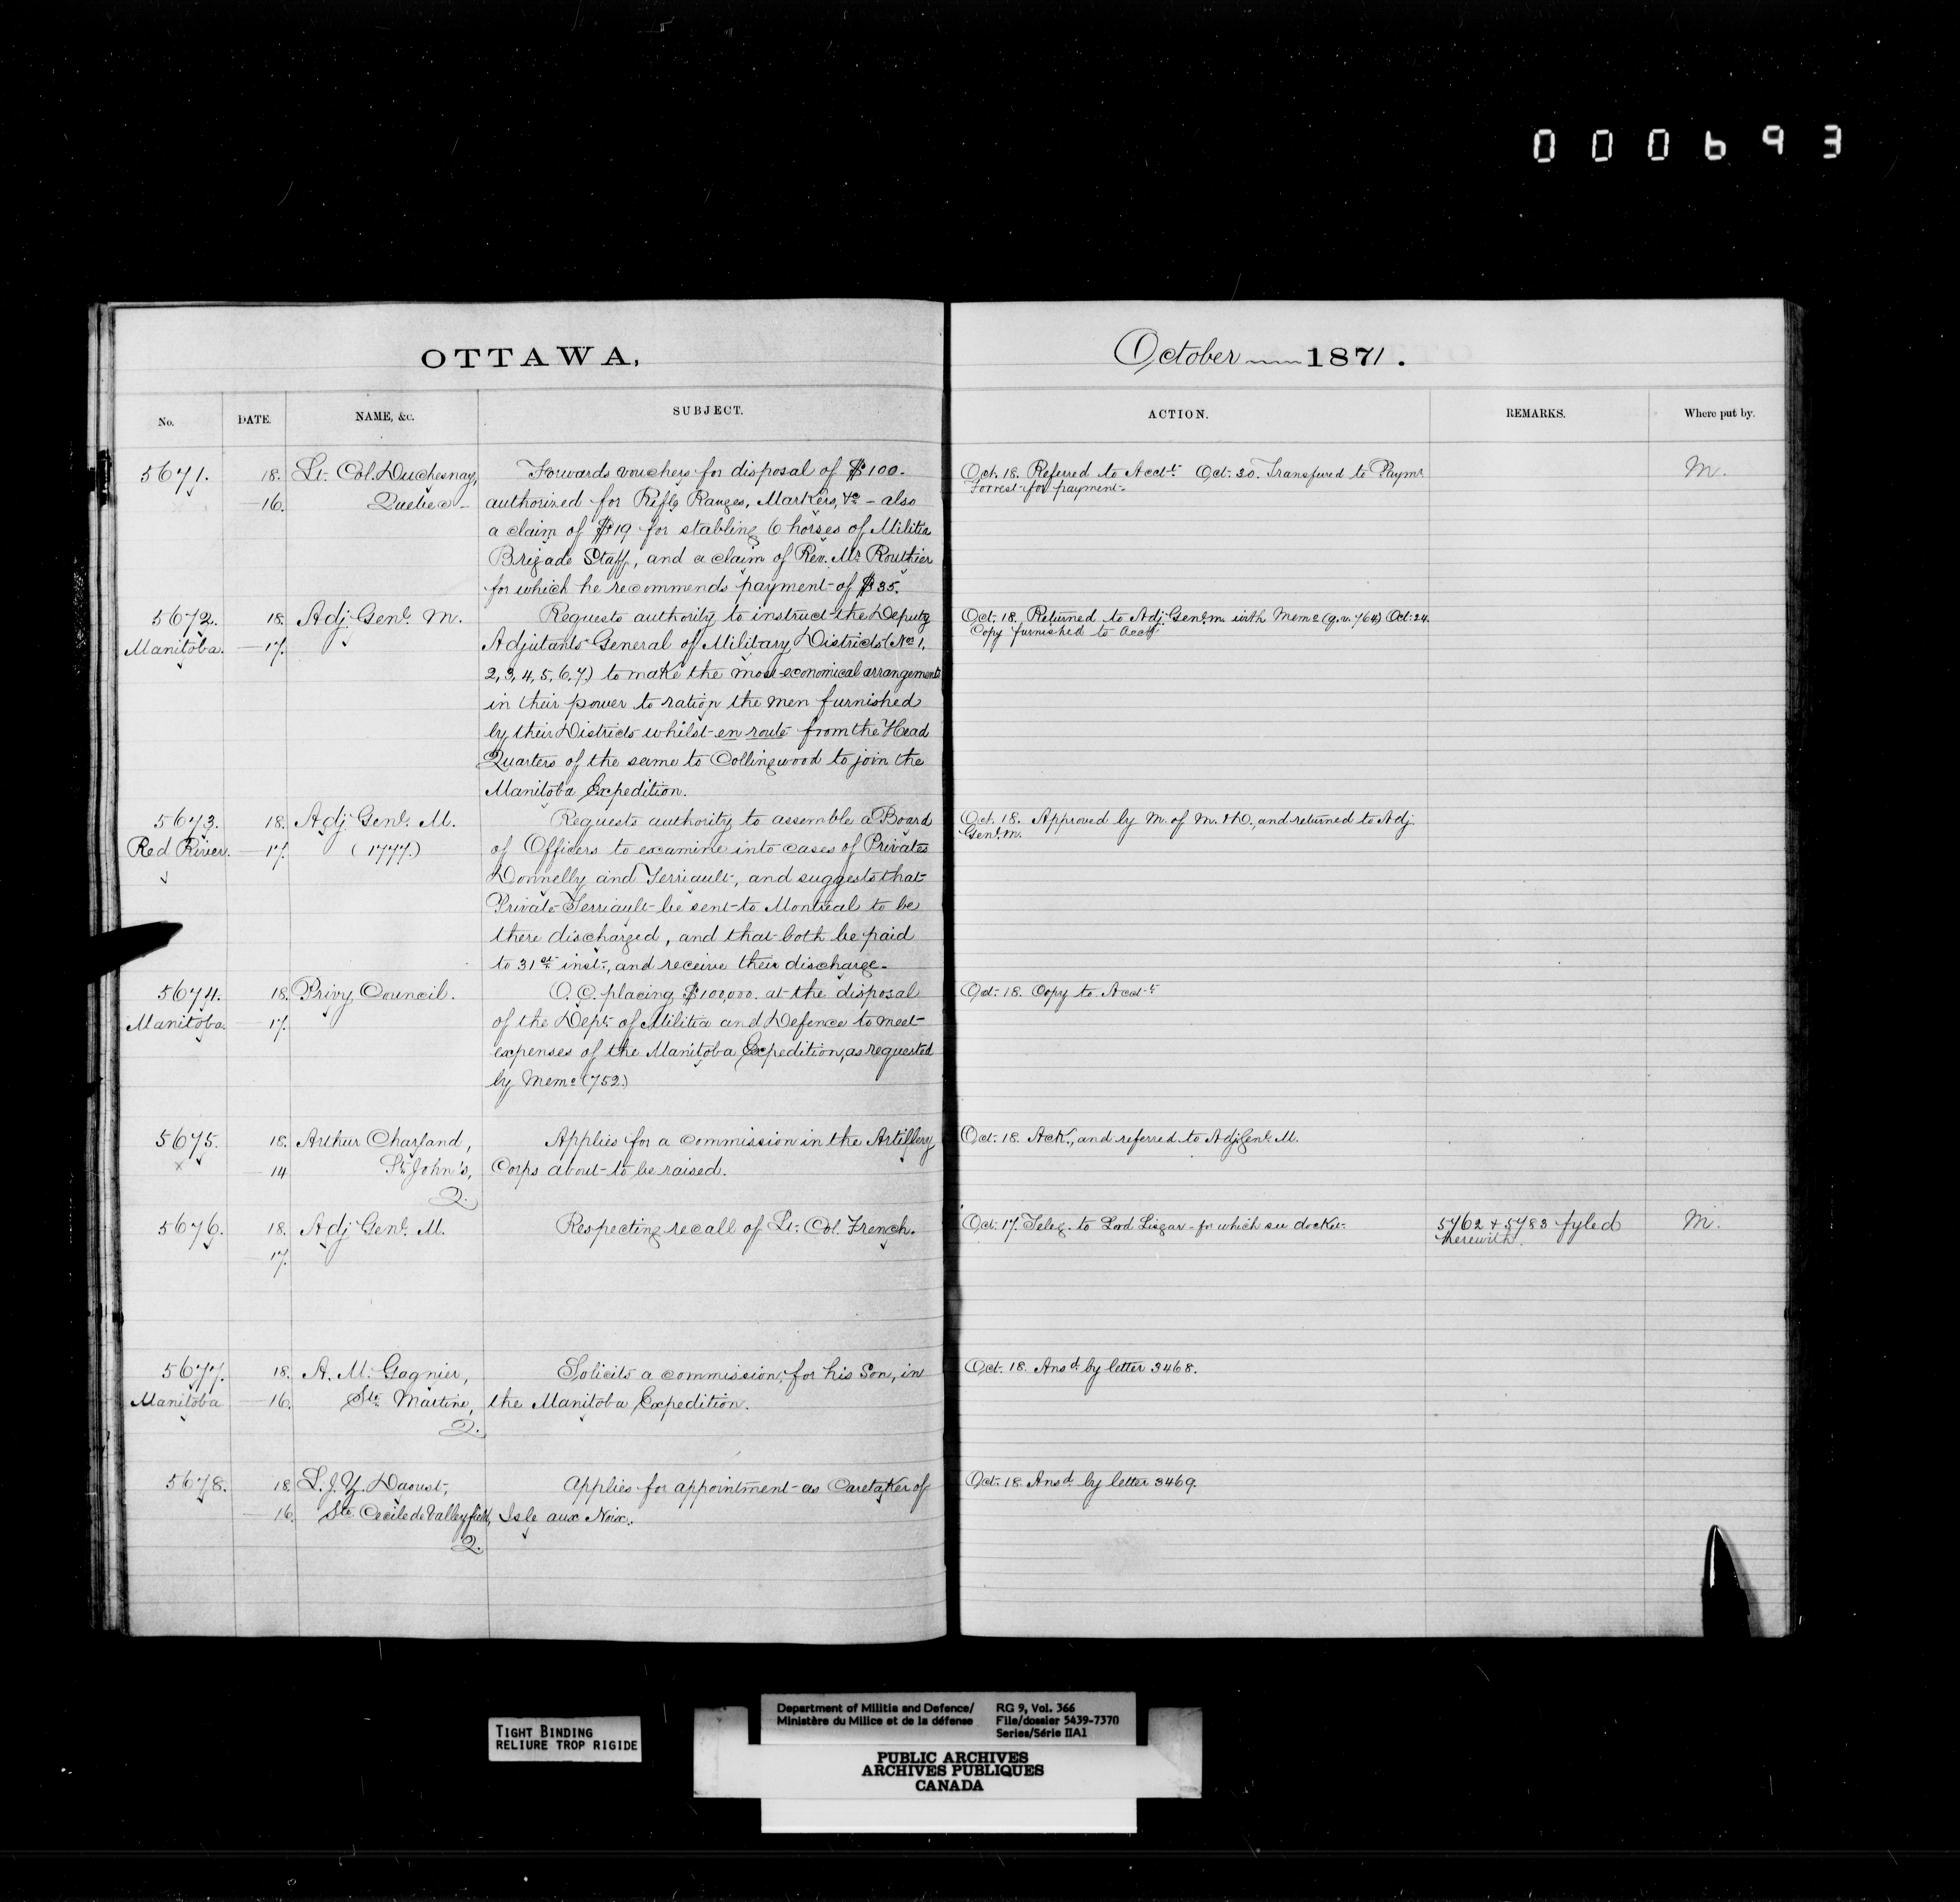 000693
OTTAWA,
October 1871.
No. DATE. NAME, &c. SUBJECT. ACTION. REMARKS. Where put by.
5671. 18. Lt. Col. Duchesnay, Forwards vouchers for disposal of $100. Oct. 18. Referred to Acct.t Oct. 20. Transferred to Paymr. M.
16. Quebec authorized for Rifle Ranges, Markers, &c - also Forrest for payment.
a claim of $19 for stabling 6 horses of Militia
Brigade Staff, and a claim of Rev. Mr. Routhier
for which he recommends payment of $35.
5672. 18. Adj. Genl. M. Requests authority to instruct the Deputy Oct. 18. Returned to Adj. Genl. M. with Memo (q.v. 764) Oct. 24.
Manitoba. 17. Adjutants General of Military Districts (No. 1, Copy furnished to Acct.
2, 3, 4, 5, 6, 7.) to make the most economical arrangements
in their power to ration the men furnished
by their Districts whilst en route from the Head
Quarters of the same to Collingwood to join the
Manitoba Expedition.
5673. 18. Adj. Genl. M. Requests authority to assemble a Board Oct. 18. Approved by M. of M. & D., and returned to Adj.
Red River. 17. (1777.) of Officers to examine into cases of Privates Genl. M.
Donnelly and Terriault, and suggests that
Private Terriault be sent to Montreal to be
there discharged, and that both be paid
to 31st inst., and receive their discharge.
5674. 18. Privy Council. O. C. placing $100,000. at the disposal Oct. 18. Copy to Acct.t
Manitoba. 17. of the Dept. of Militia and Defence to meet
expenses of the Manitoba Expedition, as requested
by Memo (752.)
5675. 18. Arthur Charland, Applies for a commission in the Artillery Oct. 18. Ack., and referred to Adj Genl. M.
x 14 St. John's, Corps about to be raised.
Q.
5676. 18. Adj Genl. M. Respecting recall of Lt. Col. French. Oct. 17. Teleg. to Lord Lisgar - for which see docket. 5762 & 5783 fyled M.
17. herewith.
5677. 18. A. M. Gagnier, Solicits a commission, for his Son, in Oct. 18. Ansd. by letter 3468.
Manitoba 16. Ste. Martine, the Manitoba Expedition.
Q.
5678. 18. L. J. Y. Daoust, Applies for appointment as Caretaker of Oct. 18. Ansd. by letter 3469.
16. Ste. Cecile de Valleyfield, Isle aux Noix.
Q.
TIGHT BINDING
RELIURE TROP RIGIDE
Department of Militia and Defence/ RG 9, Vol. 366
Ministère du Milice et de la défense File/dossier 5439-7370
Series/Série IIA1
PUBLIC ARCHIVES
ARCHIVES PUBLIQUES
CANADA